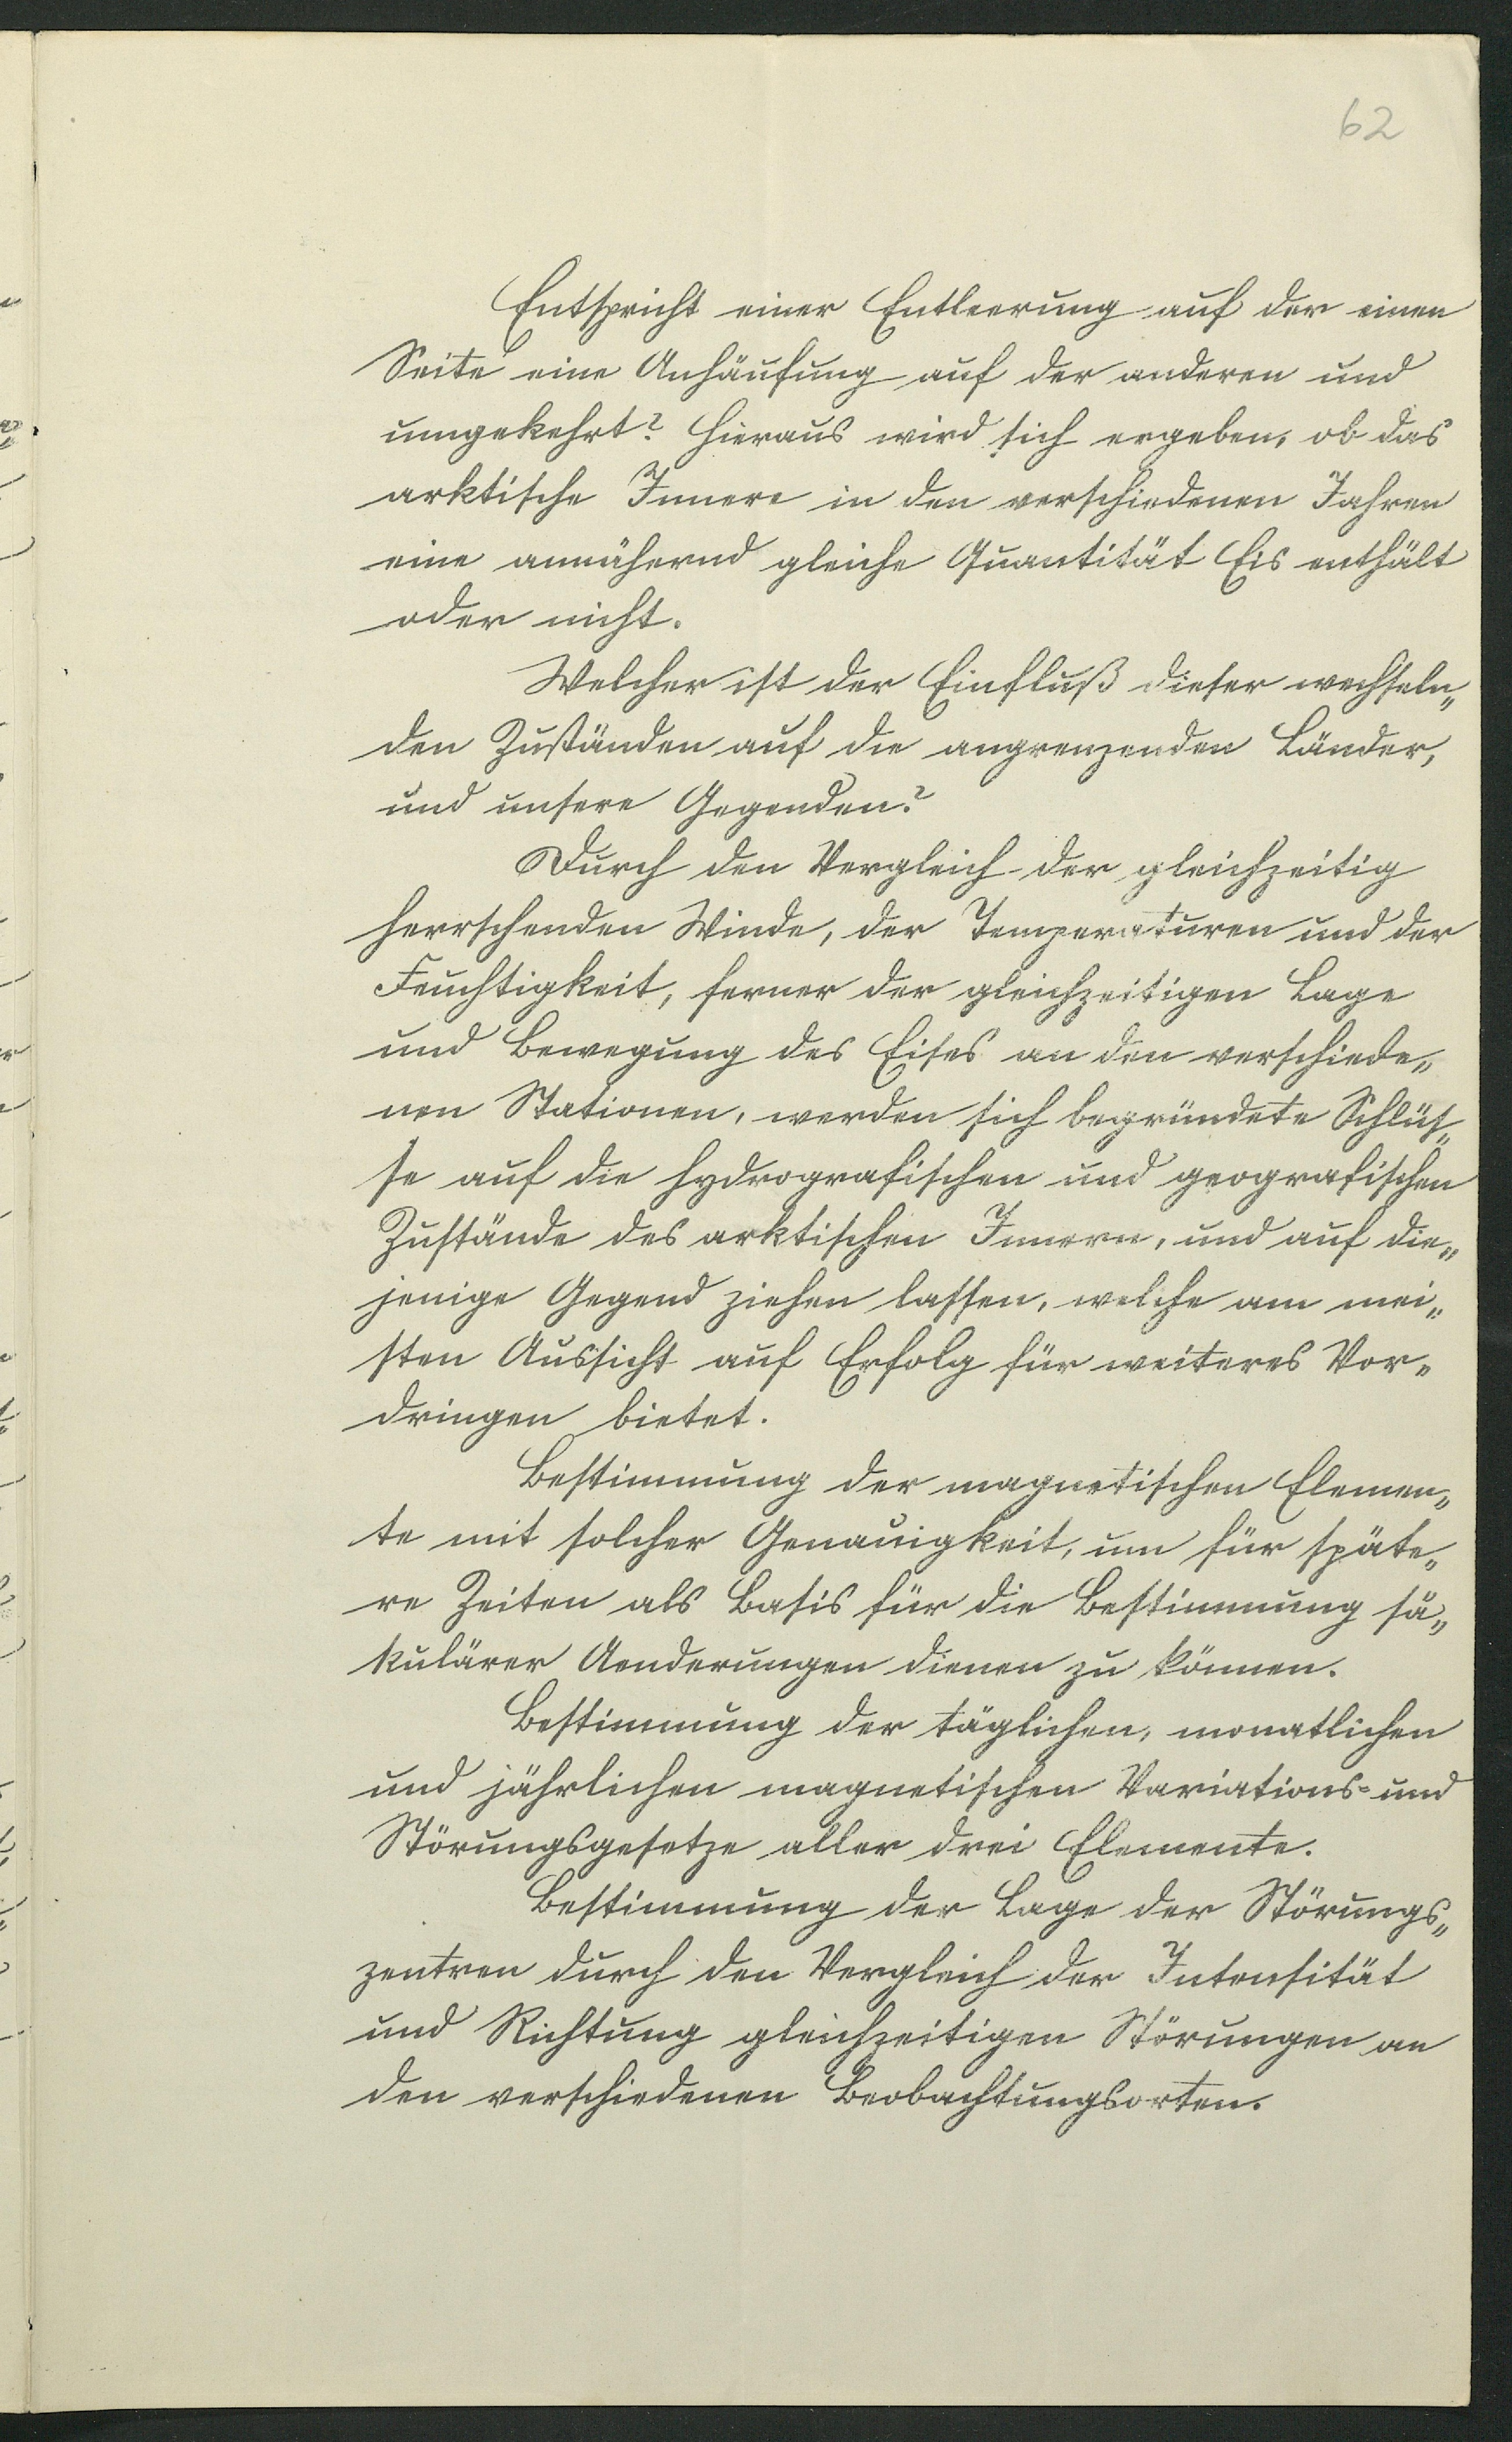 62
Entspricht einer Entleerung auf der einen
Seite eine Anhäufung auf der anderen und
umgekehrt? Hieraus wird sich ergeben, ob das
arktische Innere in den verschiedenen Jahren
eine annähernd gleiche Quantität Eis enthält
oder nicht.
Welcher ist der Einfluß dieser wechseln„
den Zuständen auf die angrenzenden Länder,
und unsere Gegenden?
Durch den Vergleich der gleichzeitig
herrschenden Winde, der Temperaturen und der
Feuchtigkeit, ferner der gleichzeitigen Lage
und Bewegung des Eises an den verschiede„
nen Stationen, werden sich begründete Schlüs„
se auf die hydrografischen und geografischen
Zustände des arktischen Innern, und auf die„
jenige Gegend ziehen lassen, welche am mei„
sten Aussicht auf Erfolg für weiteres Vor„
dringen bietet.
Bestimmung der magnetischen Elemen„
te mit solcher Genauigkeit, um für späte„
re Zeiten als Basis für die Bestimmung sä„
kulärer Aenderungen dienen zu können.
Bestimmung der täglichen, monatlichen
und jährlichen magnetischen Variations- und
Störungsgesetze aller drei Elemente.
Bestimmung der Lage der Störungs„
zentren durch den Vergleich der Intensität
und Richtung gleichzeitigen Störungen an
den verschiedenen Beobachtungsorten.